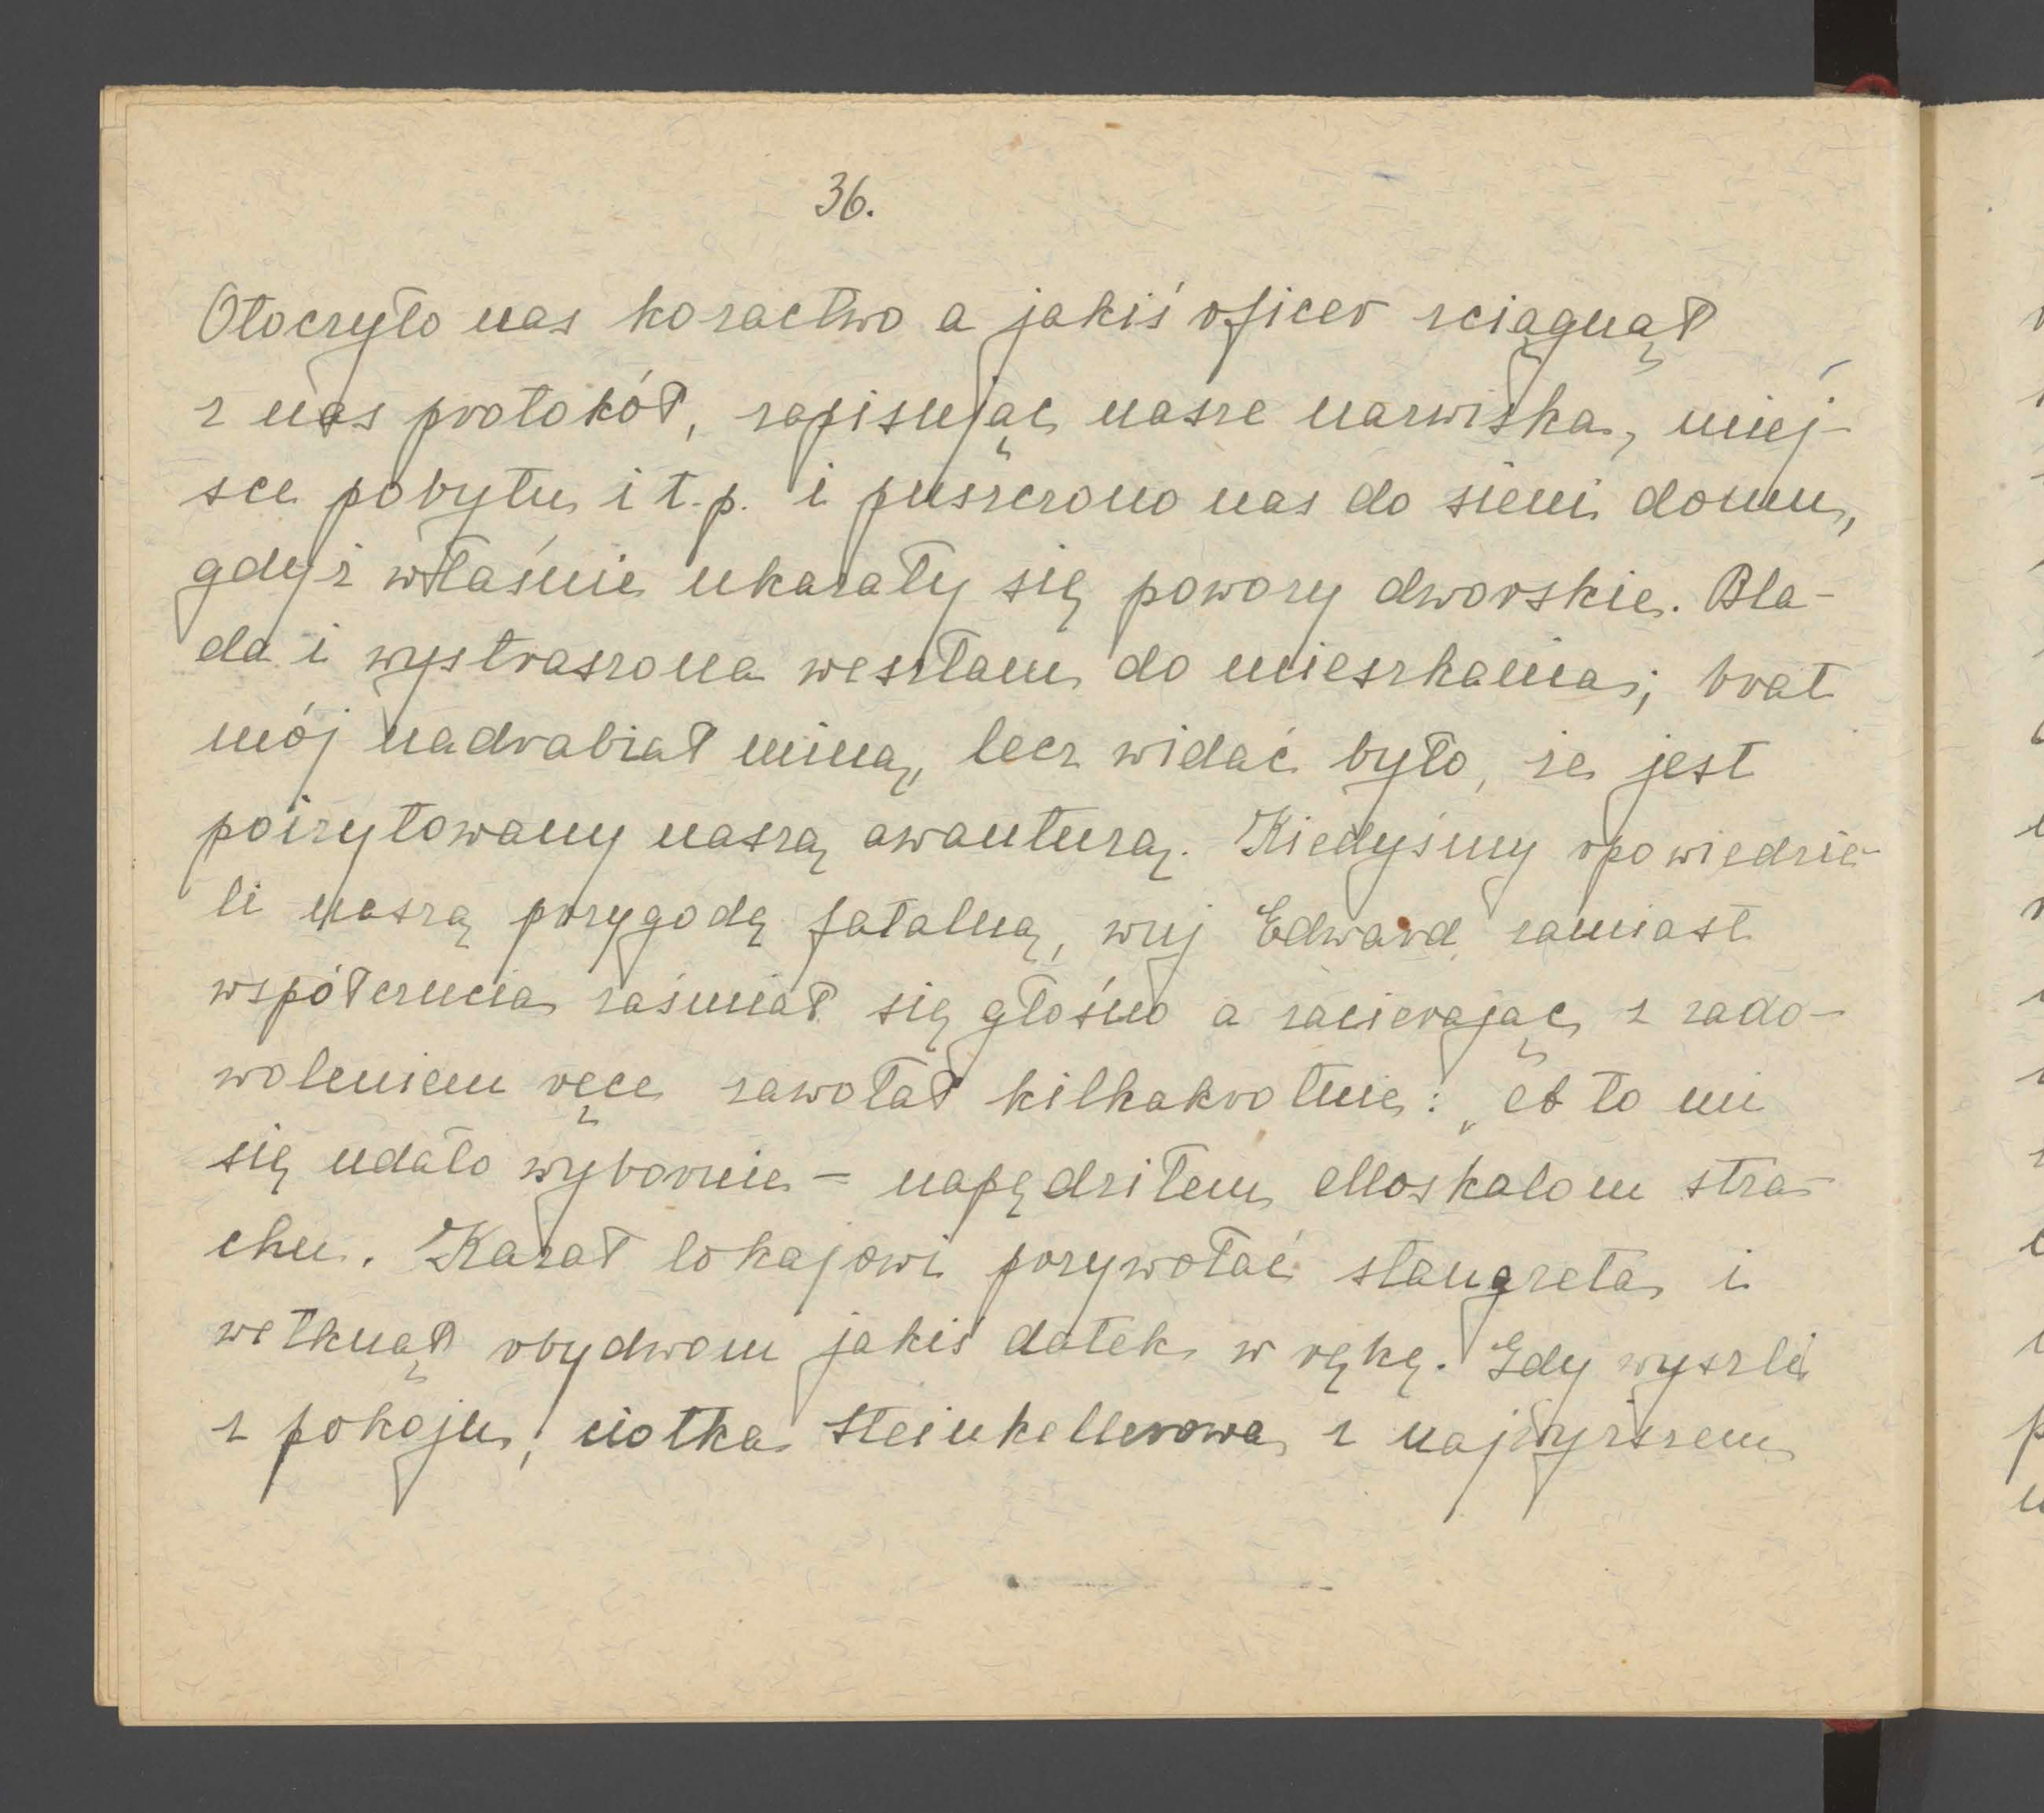 36.
Otoczyło nas kozactwo a jakiś oficer sciągnął
z nas protokół, zapisując nasze nazwiska, miej-
sce pobytu i t.p. i puszczono nas do sieni domu,
gdyż właśnie ukazały się powozy dworskie. Bla-
da i wystraszona weszłam do mieszkania; brat
mój nadrabiał miną, lecz widać było, że jest
poirytowany naszą awanturą. Kiedyśmy opowiedzie-
li naszą przygodę fatalną, wuj Edward zamiast
współczucia zaśmiał się głośno a zacierając z zado-
woleniem ręce zawołał kilkakrotnie: „A to mi
się udało wybornie - napędziłem Moskalom stra-
chu. Kazał lokajowi przywołać stangreta i
wetknął obydwom jakiś datek w rękę. Gdy wyszli
z pokoju, ciotka Steinkellerowa z najwyższem